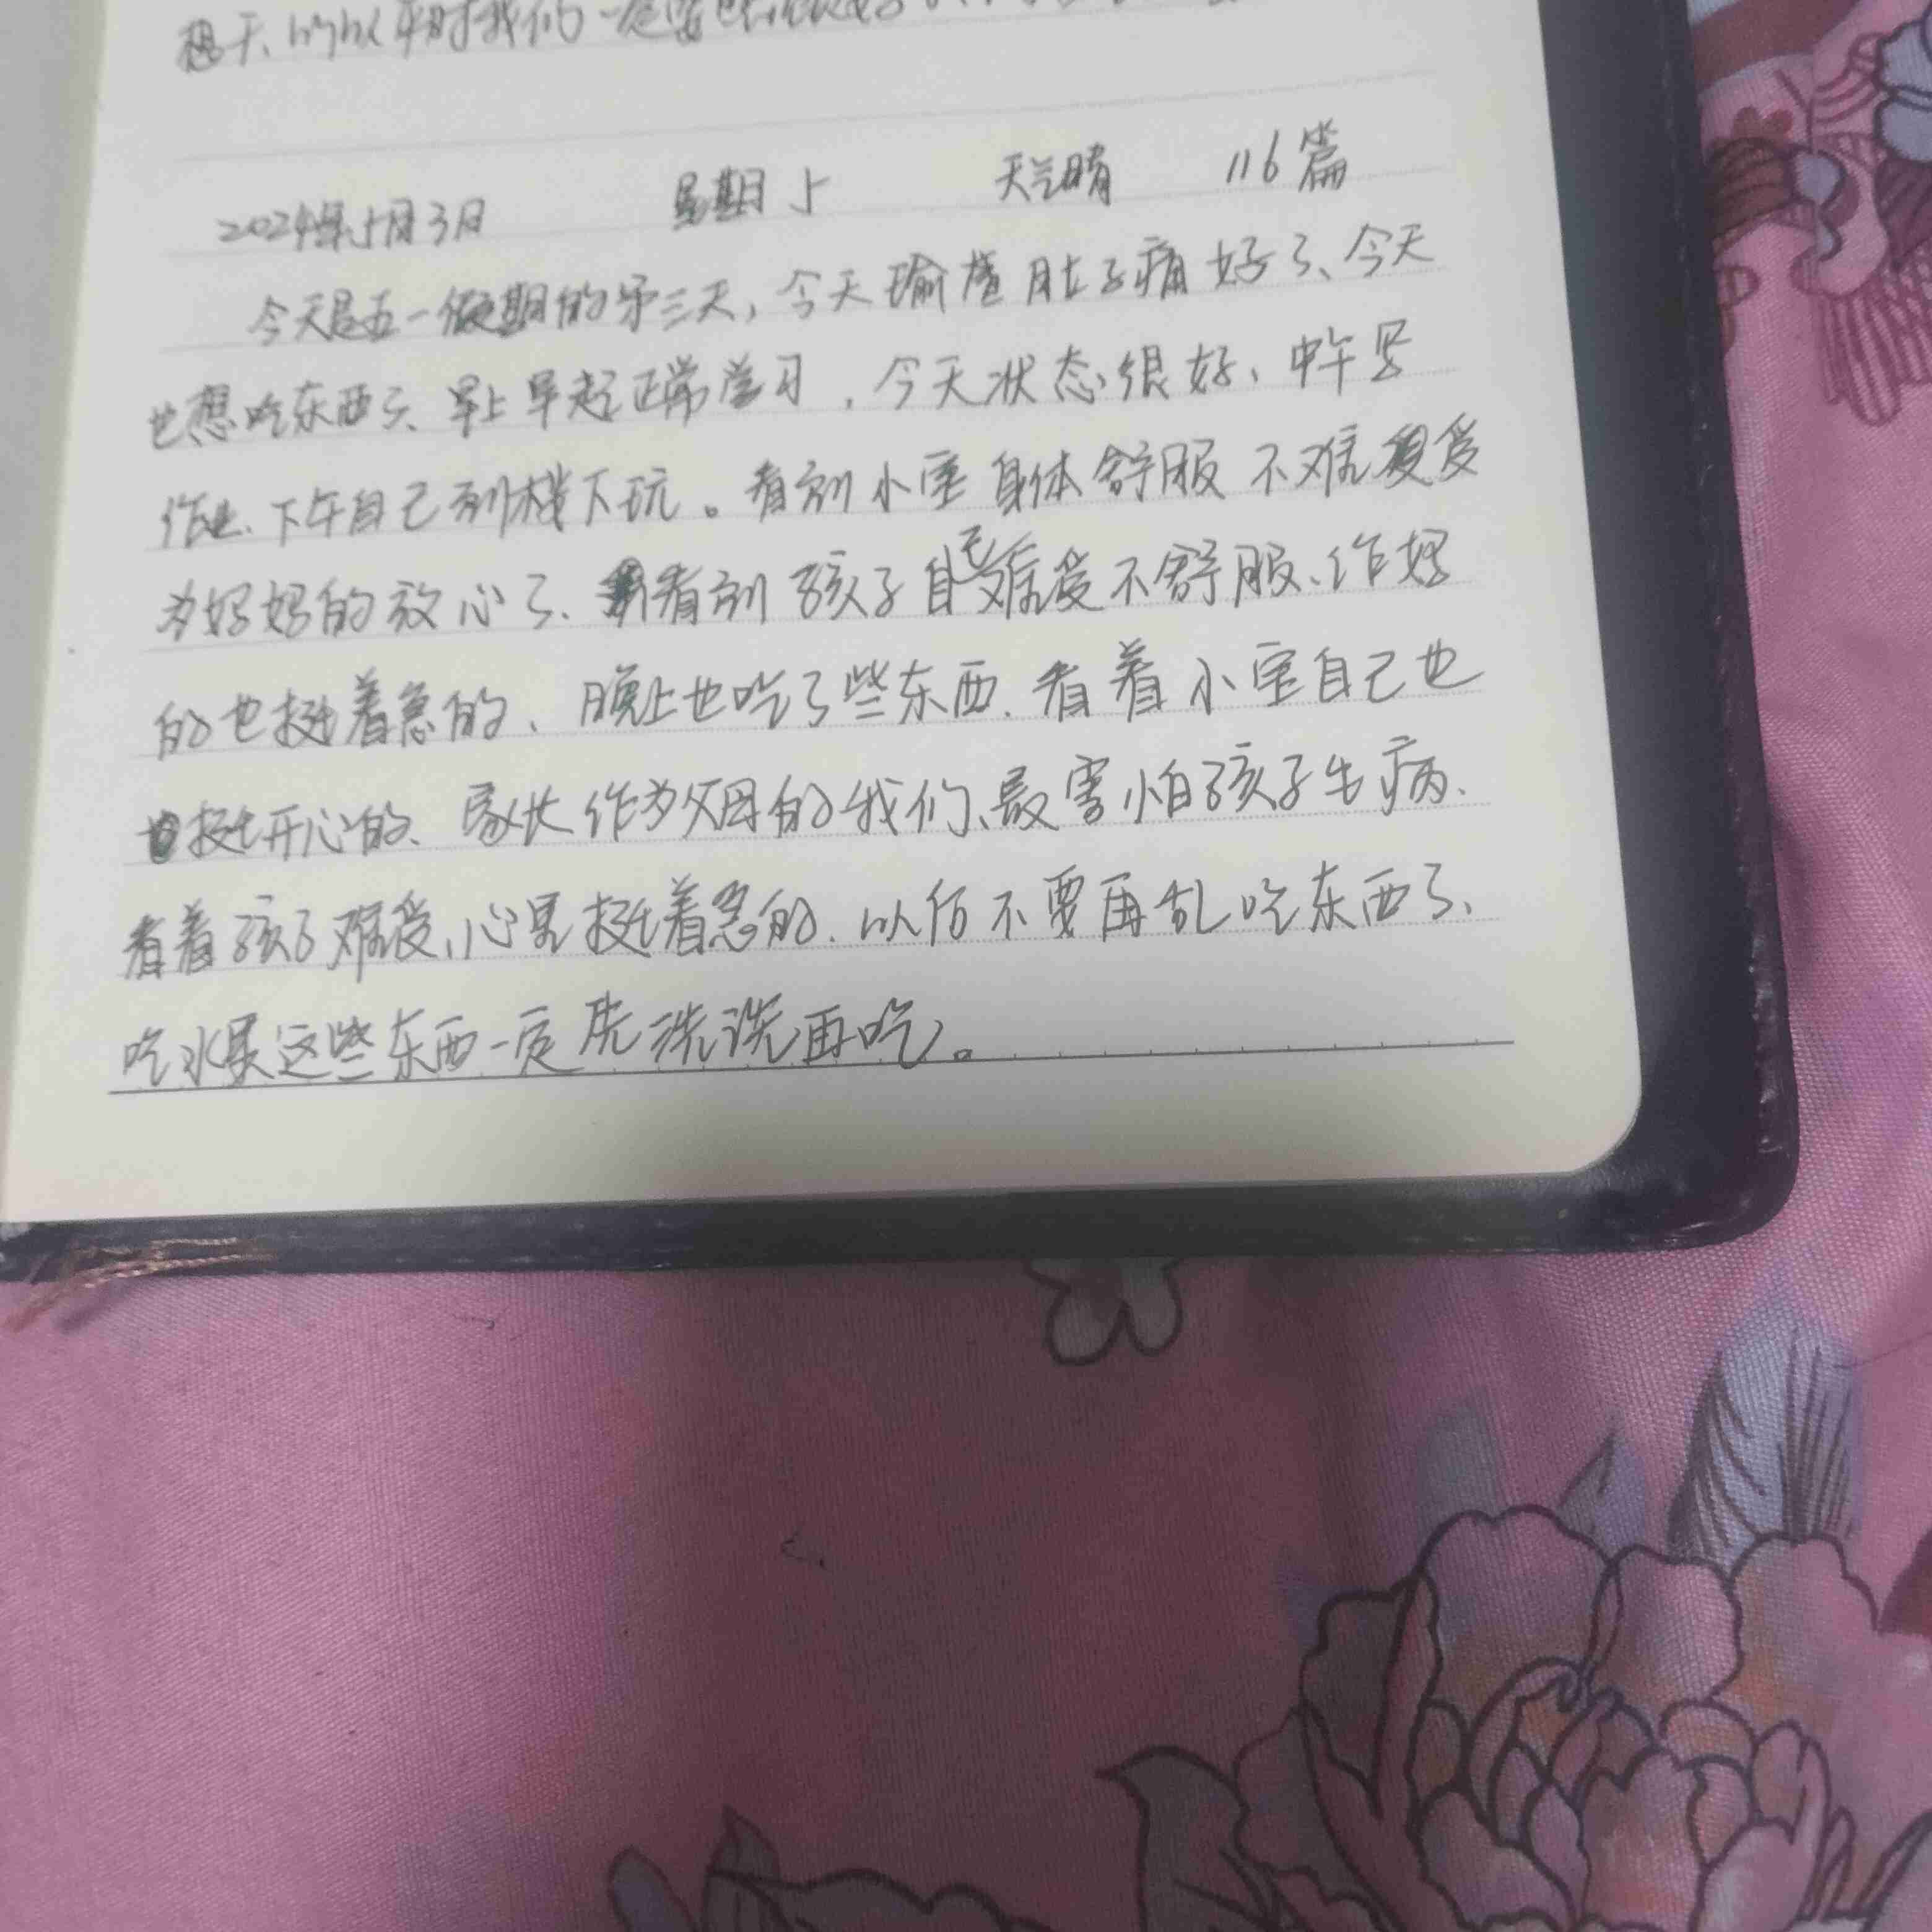 所以平时我们一定要
2024年5月3日 星期5 天气晴 116篇
今天是五一假期的第三天，今天瑜萱肚子痛好了、今天
也想吃东西了、早上早起正常学习，今天状态很好、中午写
作业、下午自己到楼下玩。看到小宝身体舒服不难受
为妈妈的放心了、看到孩子自己难受不舒服、作妈
的也挺着急的、晚上也吃了些东西、看着小宝自己也
挺开心的、家长作为父母的我们、最害怕孩子生病、
看着孩子难受，心里挺着急的、以后不要再乱吃东西了、
吃水果这些东西一定先洗洗再吃。